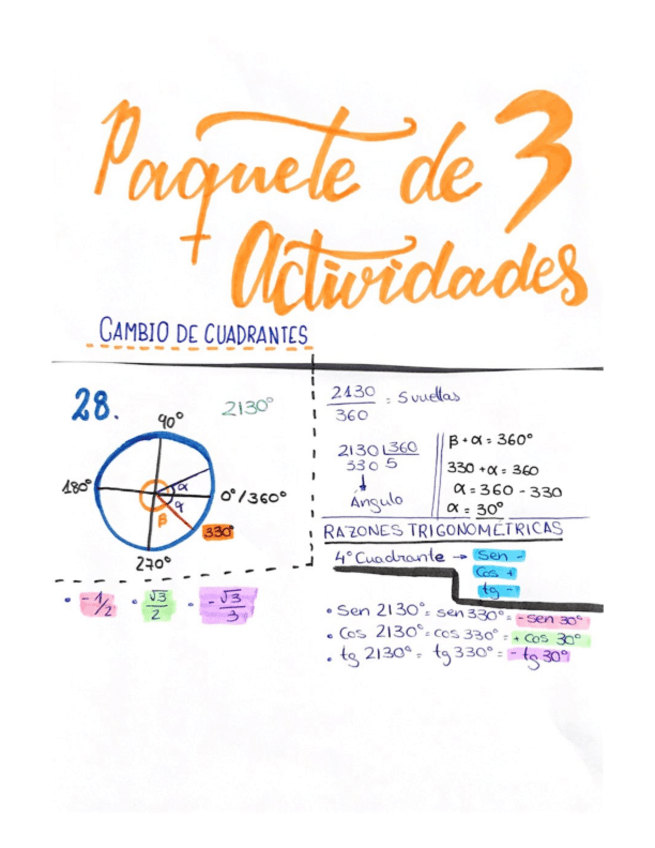 Paquete de 3
+ Actividades
CAMBIO DE CUADRANTES
28.
2130°
90°
180°
0°/360°
α
α
β
330°
270°
• -1/2 • √3/2 • -√3/3
2130/360 = 5 vueltas
2130 360
330 5
Ángulo
β + α = 360°
330 + α = 360
α = 360 - 330
α = 30°
RAZONES TRIGONOMETRICAS
4° Cuadrante → Sen -
Cos +
tg -
• Sen 2130° = sen 330° = - sen 30°
• Cos 2130° = cos 330° = + cos 30°
• tg 2130° = tg 330° = - tg 30°